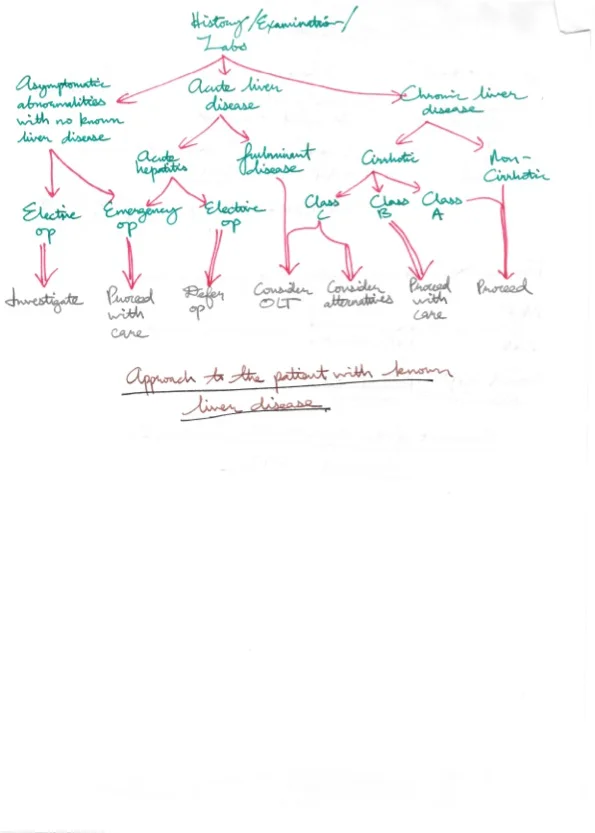 History/Examination/
Labs
Asymptomatic
abnormalities
with no known
liver disease
Acute liver
disease
Chronic liver
disease
Acute
hepatitis
fulminent
disease
Cirrhotic
Non-
Cirrhotic
Elective
op
Emergency
op
Elective
op
Class
C
Class
B
Class
A
Investigate
Proceed
with
care
Defer
op
Consider
OLT
Consider
alternatives
Proceed
with
care
Proceed
Approach to the patient with known
liver disease.